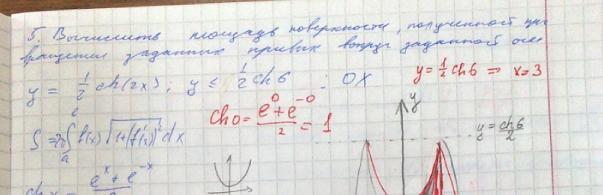 5. Вычислить площадь поверхности, полученной при
вращении заданных кривых вокруг заданной оси
y = 1/2 ch(2x), y ≤ 1/2 ch6 : OX
y = 1/2 ch6 ⇒ x=3
ch0 = (e^0 + e^-0)/2 = 1
S = 2π∫ f(x) √(1+(f'(x))^2) dx
a
y
y = ch6/2
ch x = e^x + e^-x